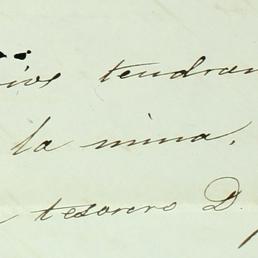 tendran
la mina.
tesorero D.